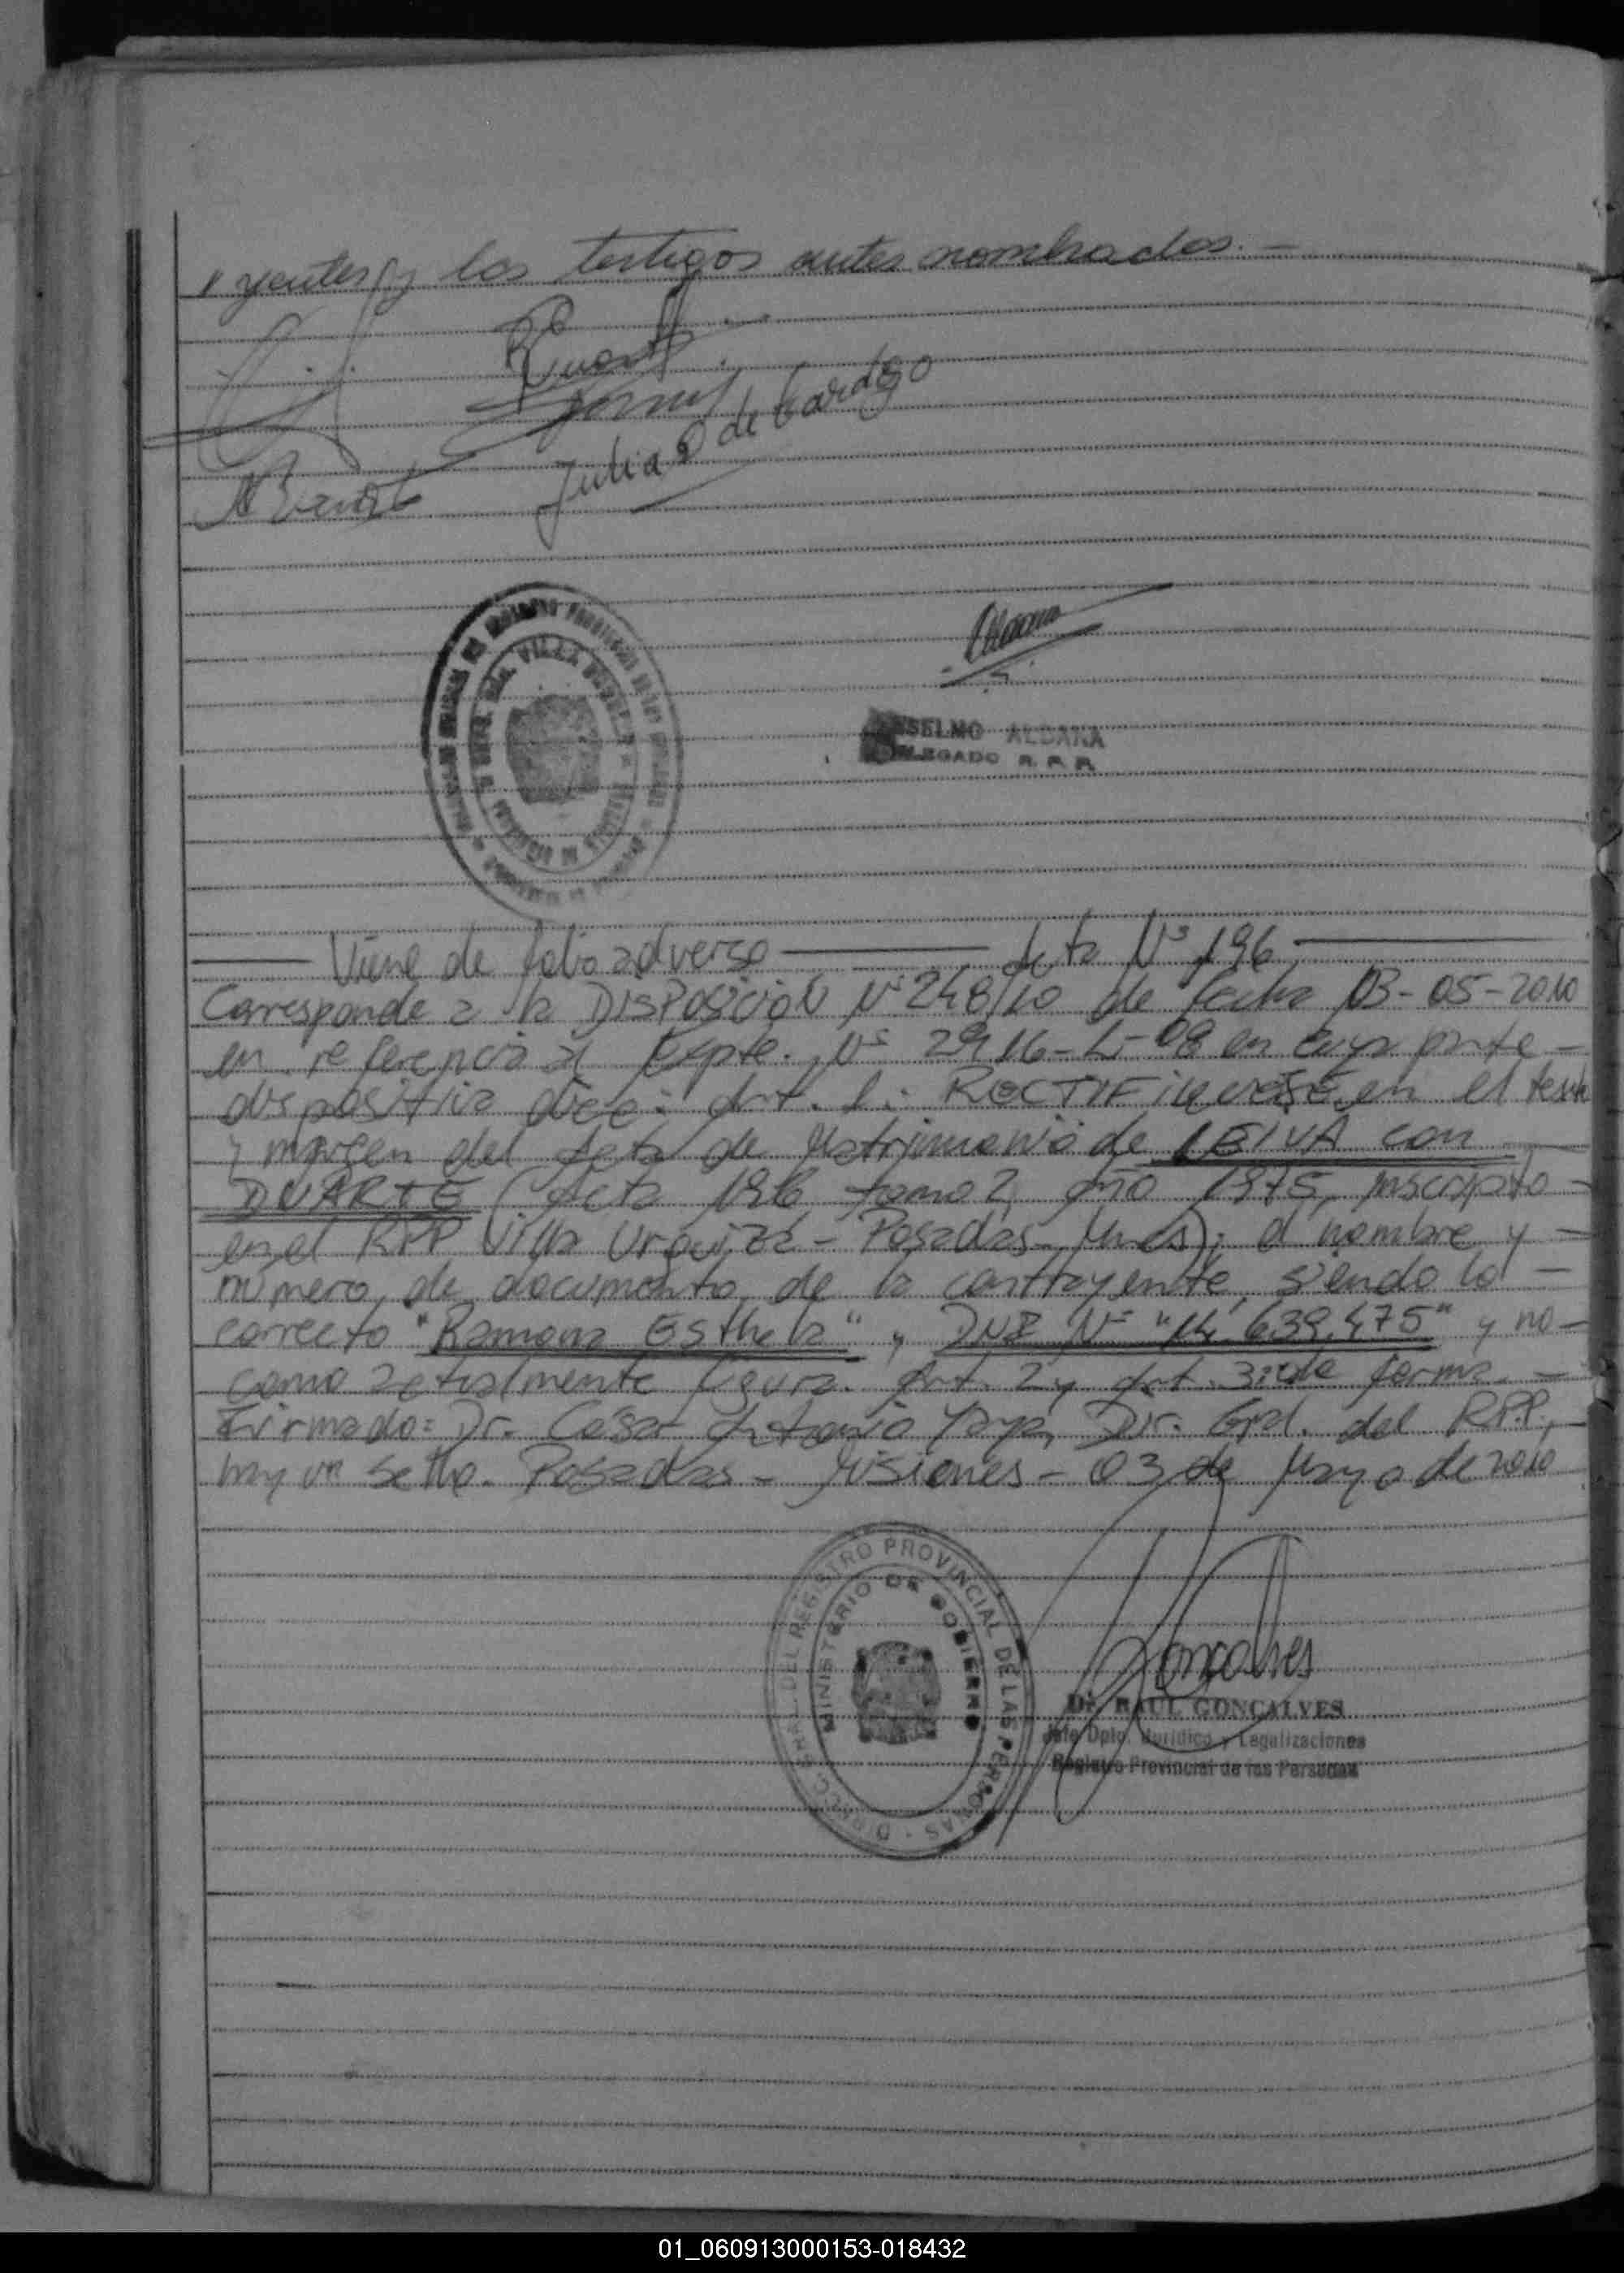 " yentes y los testigos antes nombrados.-
Julia D de Cardozo
VILLA
ANSELMO ALDANA
DELEGADO R. P. P.
Viene de folio adverso Acta Nº 196
Corresponde a la DISPOSICION Nº 248/10 de fecha 03-05-2010
en referencia al Expte. Nº 2916-L-08 en cuya parte -
dispositiva dice: Art. 1: RECTIFIQUESE en el texto
y margen del Acta de Matrimonio de LEIVA con
DUARTE (Acta 196 tomo 2, año 1975, inscripto -
en el RPP Villa Urquiza - Posadas - Mnes); el nombre y -
número de documento de la contrayente, siendo lo -
correcto "Ramona Esthela" y DNI Nº "14.639.475" y no -
como actualmente figura. Art. 2 y Art. 3: de forma. -
Firmado: Dr. Cesar Antonio Yaya, Dir. Gral. del R.P.P., -
hay un sello. Posadas - Misiones - 03 de Mayo de 2010
DIRECC. GRAL. DEL REGISTRO PROVINCIAL DE LAS PERSONAS
MINISTERIO DE GOBIERNO
Goncalves
Dr. RAUL GONCALVES
Jefe Dpto. Jurídico y Legalizaciones
Registro Provincial de las Personas
01_060913000153-018432